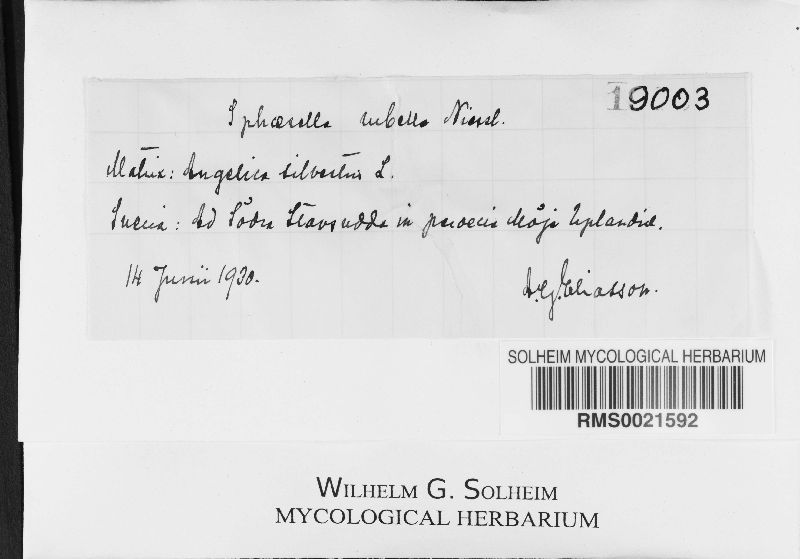 19003
Sphaerella rubella Niessl.
Matrix: Angelica silvestris L.
Suecia: Ad Södra Stavsudda in paroecia Möja Uplandiæ.
14 Junii 1930.
A.G. Eliasson.
SOLHEIM MYCOLOGICAL HERBARIUM
RMS0021592
WILHELM G. SOLHEIM
MYCOLOGICAL HERBARIUM